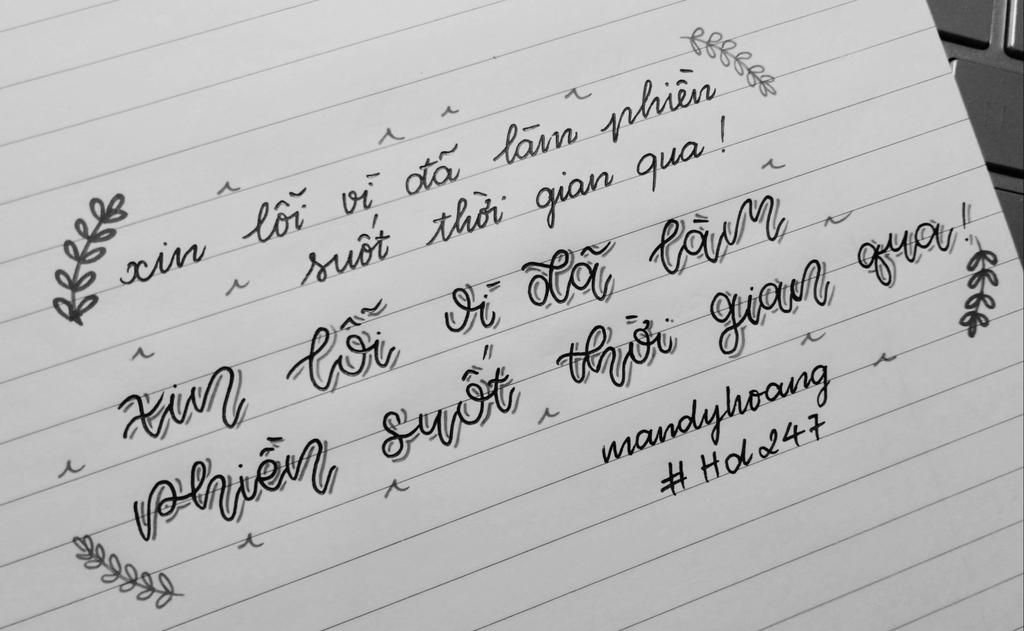 xin lỗi vì đã làm phiền
suốt thời gian qua!
xin lỗi vì đã làm
phiền suốt thời gian qua!
mandyhoang
#Hd247